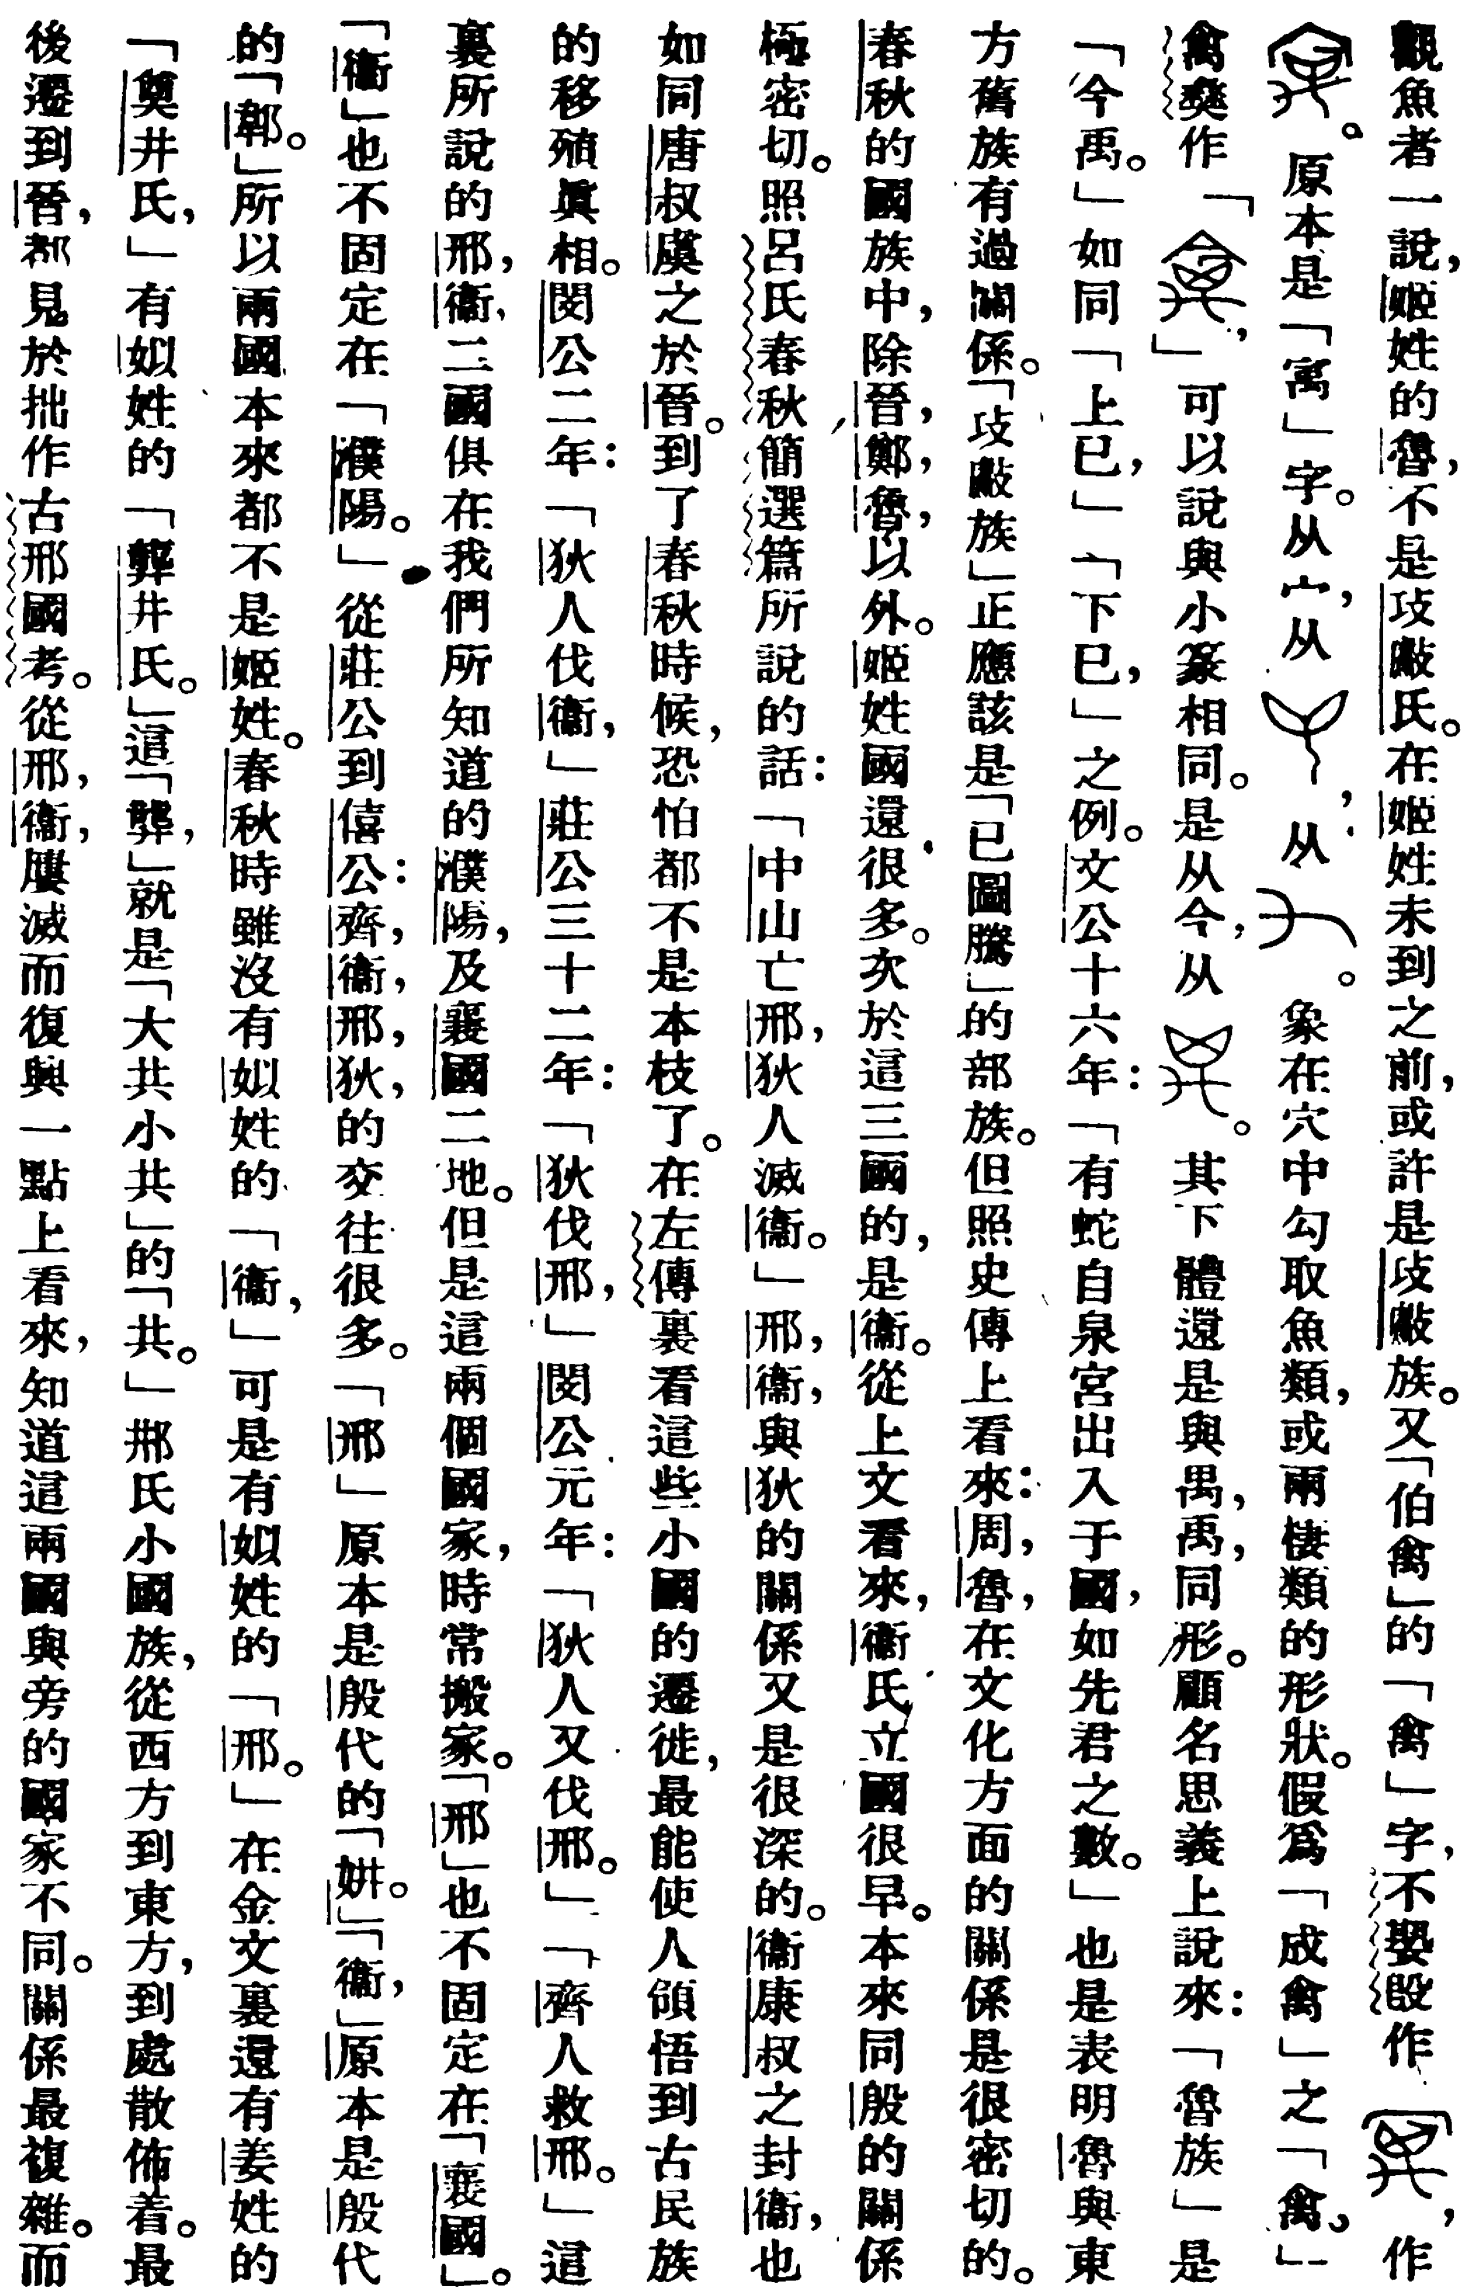 觀魚者一說，姬姓的魯，不是攱㩻氏。在姬姓未到之前，或許是攱㩻族。又「伯禽」的「禽」字，不𡠗𣪘作，作
。原本是「寓」字。从宀，从，从。象在穴中勾取魚類，或兩棲類的形狀。假爲「成禽」之「禽」，
禽彝作「，」可以說與小篆相同。是从今，从。其下體還是與禺，禹，同形。顧名思義上說來：「魯族」是
「今禹。」如同「上巳，」「下巳，」之例。文公十六年：「有蛇自泉宮出入于國，如先君之數。」也是表明魯與東
方舊族有過關係。「攱㩻族」正應該是「已圖騰」的部族。但照史傳上看來：周，魯，在文化方面的關係是很密切的。
春秋的國族中，除晉，鄭，魯，以外。姬姓國還很多。次於這三國的，是衞。從上文看來，衞氏立國很早。本來同殷的關係
極密切。照呂氏春秋簡選篇所說的話：「中山亡邢，狄人滅衞。」邢，衞，與狄的關係又是很深的。衞康叔之封衞，也
如同唐叔虞之於晉。到了春秋時候，恐怕都不是本枝了。在左傳裏看這些小國的遷徙，最能使人領悟到古民族
的移殖眞相。閔公二年：「狄人伐衞，」莊公三十二年：「狄伐邢，」閔公元年：「狄人又伐邢。」「齊人救邢。」這
裏所說的邢，衞，二國俱在我們所知道的濮陽，及襄國二地。但是這兩個國家，時常搬家。「邢」也不固定在「襄國」。
「衞」也不固定在「濮陽。」從莊公到僖公：齊，衞，邢，狄，的交往很多。「邢」原本是殷代的「妌。」「衞，」原本是殷代
的「鄣。」所以兩國本來都不是姬姓。春秋時雖沒有姒姓的「衞，」可是有姒姓的「邢。」在金文裏還有姜姓的
「奠井氏，」有姒姓的「𢍰井氏。」這「𢍰，」就是「大共小共」的「共。」邢氏小國族，從西方到東方，到處散佈着。最
後遷到晉，都見於拙作古邢國考。從邢，衞，屢滅而復興一點上看來，知道這兩國與旁的國家不同。關係最複雜。而